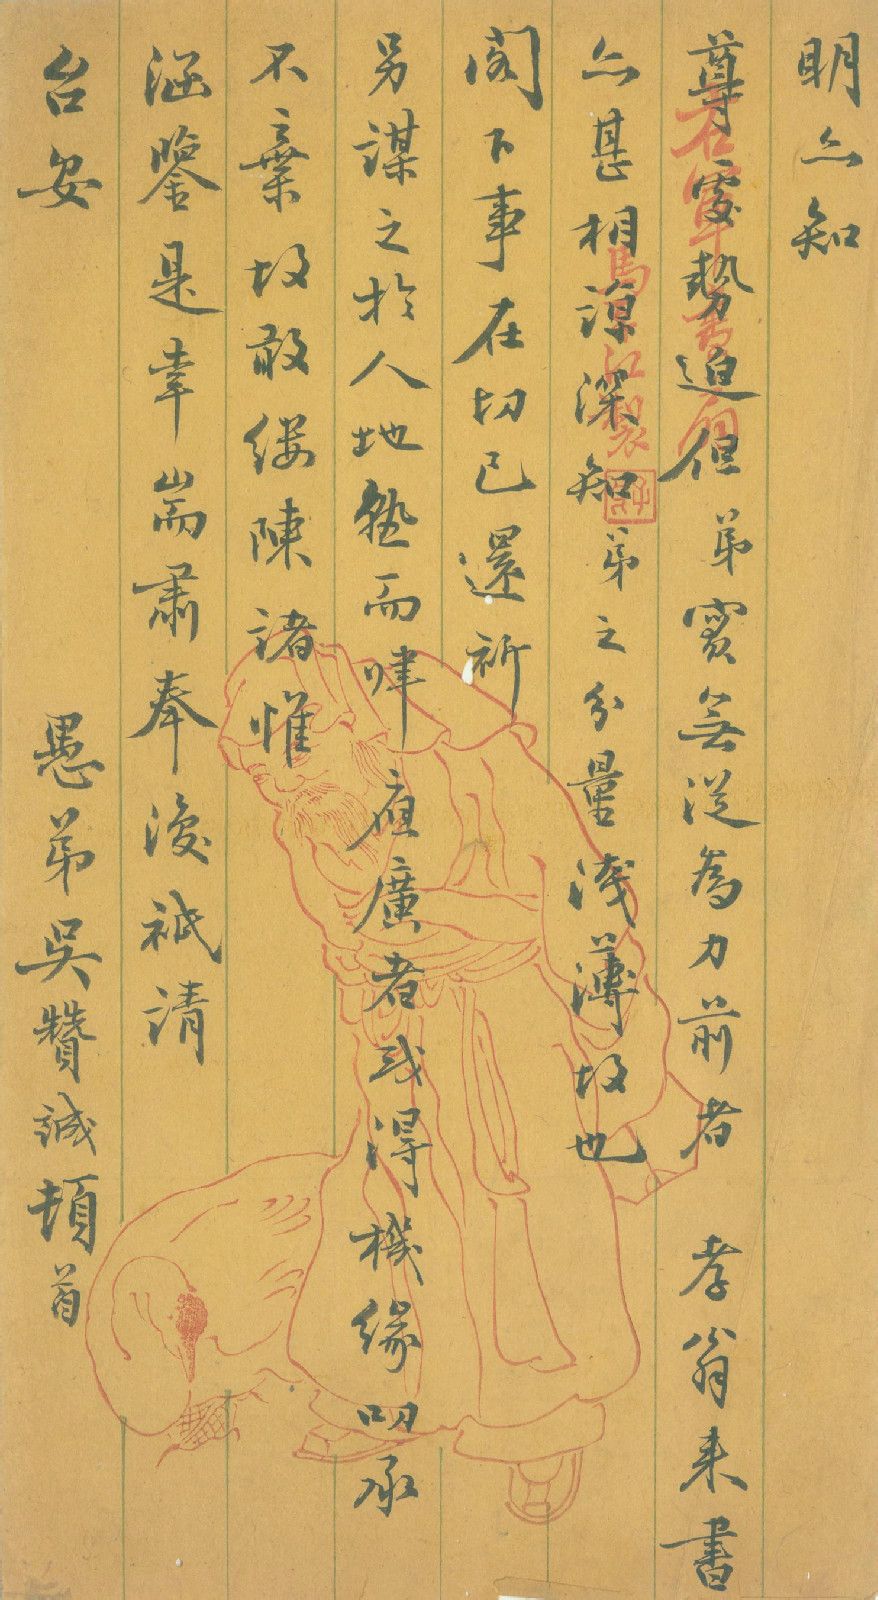 明亦知
尊處勢迫但弟實無從為力前者 孝翁来書
亦甚相諒深知弟之分量淺薄故也
閣下事在切已還祈
另謀之於人地熟而肆應廣者或得機緣叨承
不棄故敢縷陳諸惟
涵鑒是幸耑肅奉復祗請
台安 愚弟吳贊誠頓首
右軍書扇